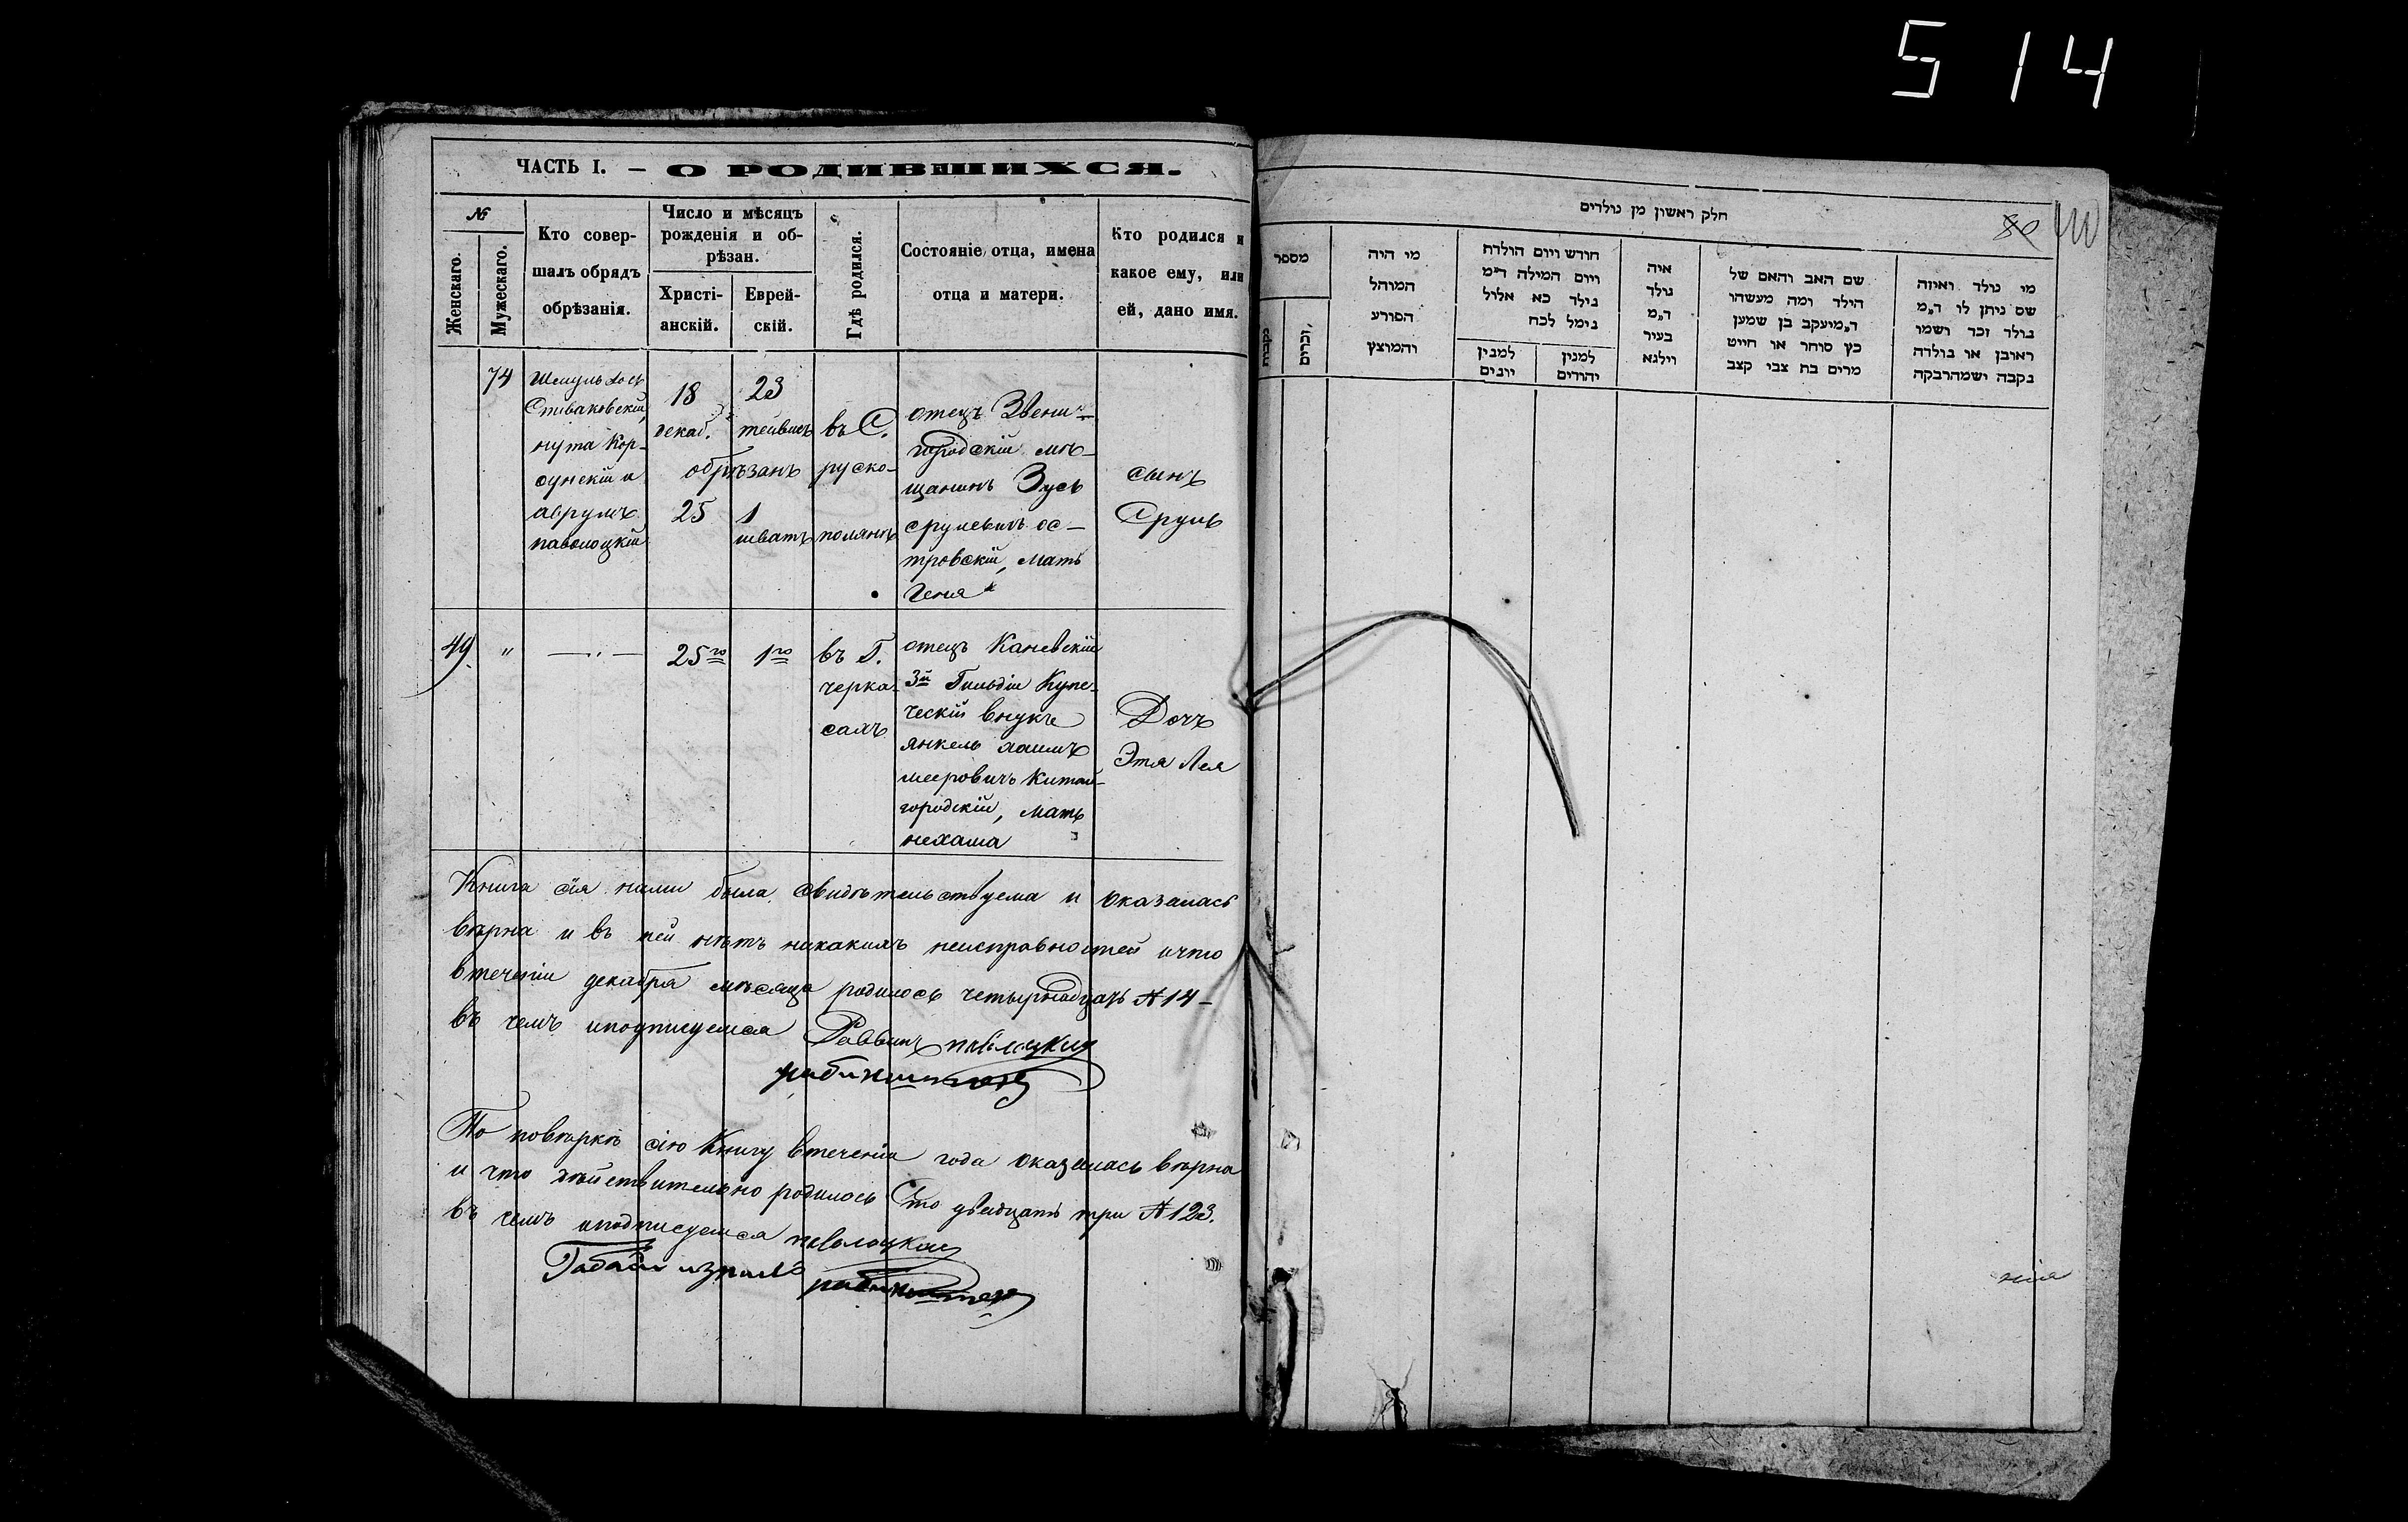 5 14
ЧАСТЬ I. — О РОДИВШИХСЯ.
№
Женскаго.
Мужескаго.
Кто совер-
шалъ обрядъ
обрѣзанія.
Число и мѣсяцъ
рожденія и об-
рѣзан.
Христі-
анскій.
Еврей-
скій.
Гдѣ родился.
Состояніе отца, имена
отца и матери.
Кто родился и
какое ему, или
ей, дано имя.
74
Спиваковскій,
нута Кор-
сунскій и
аврумъ
паволоцкій
18
декаб.
23
тейвисъ
обрѣзанъ
25
1
шватъ
въ С.
руско-
полянѣ
отецъ Звени-
городскій мѣ-
щанинъ Зусь
срулевичъ ос-
тровскій, мать
Геня
сынъ
Сруль
49
"
— " —
25го
1го
въ Г.
черка-
сахъ
отецъ Каневскій
3й Гильдіи Купе-
ческій внукъ
янкель хаимъ
мееровичъ Китай-
городскій, мать
нехама
Дочъ
Этя Лея
Книга сія нами была свидѣтельствуема и оказалась
вѣрна и въ ней нѣтъ никакихъ неисправностей и что
втеченіи декабря мѣсяца родилось четырнадцать № 14 —
въ чемъ и подписуемся Раввинъ паволоцкій
По повѣркѣ сію Книгу втеченіи года оказалась вѣрна
и что дѣйствительно родилось Сто двадцать три № 123.
въ чемъ и подписуемся паволоцкій
חלק ראשון מן נולדים
80
מספר
נקבות
זכרים
מי היה
המוהל
הפורע
והמוצץ
חודש ויום הולדת
ויום המילה ד"מ
נולד כא אלול
נימל לכח
למנין
יונים
למנין
יהודים
איה
נולד
ד"מ
בעיר
וילנא
שם האב והאם של
הילד ומה מעשהו
ד"מ יעקב בן שמען
כץ סוחר או חייט
מרים בת צבי קצב
מי נולד ואיזה
שם ניתן לו ד"מ
נולד זכר ושמו
ראובן או נולדה
נקבה ושמה רבקה
нія